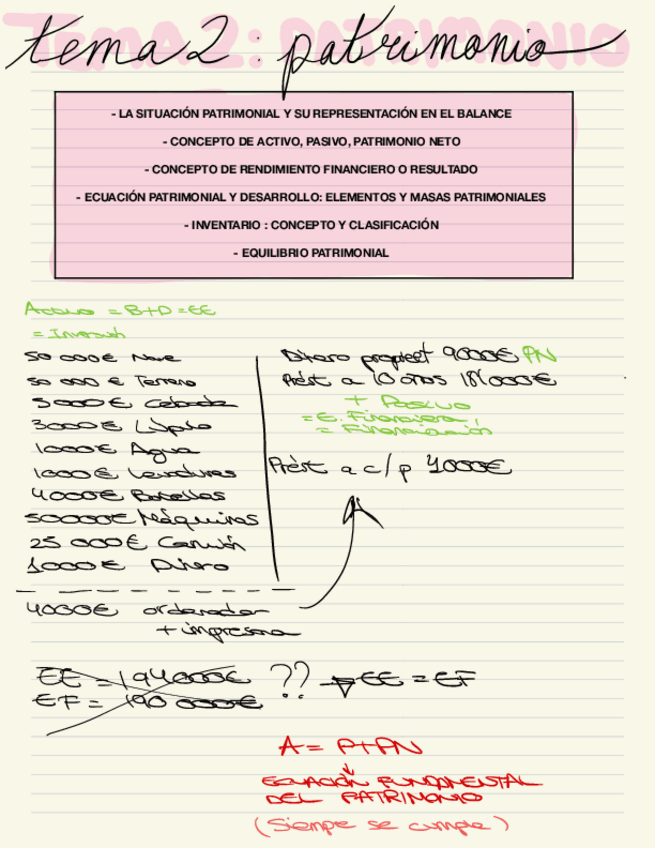 tema 2: patrimonio
- LA SITUACIÓN PATRIMONIAL Y SU REPRESENTACIÓN EN EL BALANCE
- CONCEPTO DE ACTIVO, PASIVO, PATRIMONIO NETO
- CONCEPTO DE RENDIMIENTO FINANCIERO O RESULTADO
- ECUACIÓN PATRIMONIAL Y DESARROLLO: ELEMENTOS Y MASAS PATRIMONIALES
- INVENTARIO : CONCEPTO Y CLASIFICACIÓN
- EQUILIBRIO PATRIMONIAL
Activo = B+D = EE
= Inversión
50 000€ Nave
50 000 € Terreno
5000€ Cebada
3000€ Lúpulo
1000€ Agua
1000€ Levaduras
4000€ Botellas
50000€ Máquinas
25 000€ Camión
1000€ Dinero
4000€ ordenador
+ impresora
Dinero propiet 9000€ PN
Prést a 10 años 181000€
+ Pasivo
= E. Financiera
= Financiación
Prést a c/p 4000€
EE = 194000€ ?? → EE = EF
EF = 190 000€
A = P+PN
ECUACIÓN FUNDAMENTAL
DEL PATRIMONIO
(Siempre se cumple)